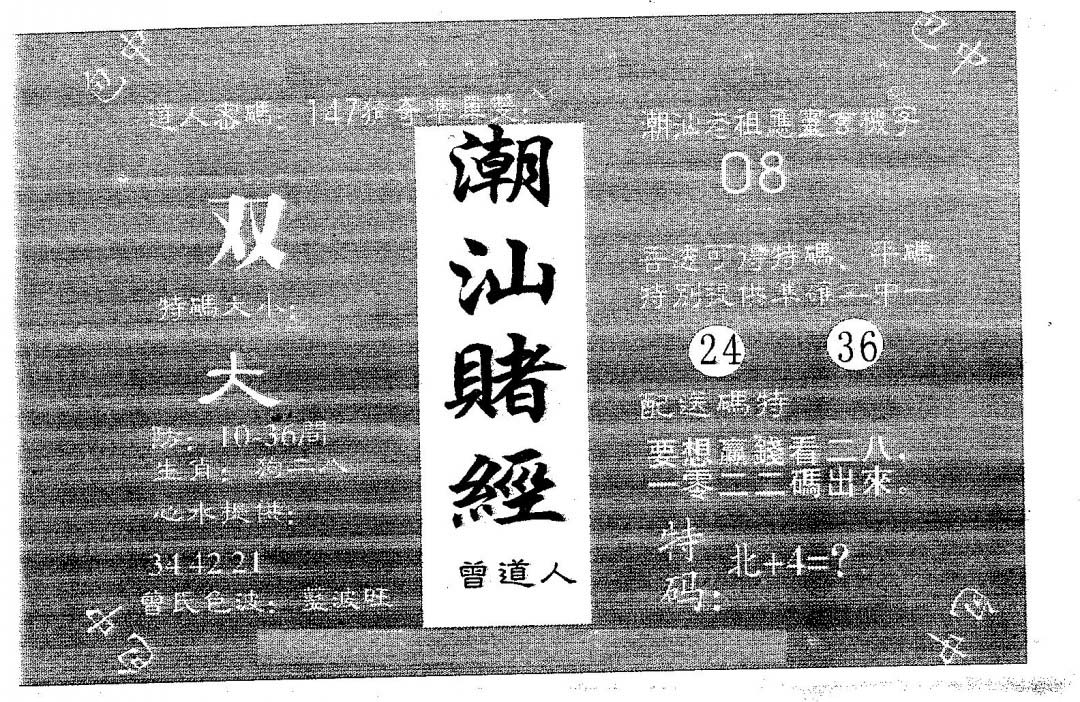 道人密碼：147
双
特碼大小：
大
防：10-36間
生肖：狗二八
心水提供：
34 42 21
曾氏色波：藍波旺
潮汕賭經
曾道人
潮汕老祖應靈會機字
08
特碼、平碼
特別提供準確二中一
24 36
配送碼特
要想贏錢看二八．
一零二二碼出來．
特码：
北+4=?